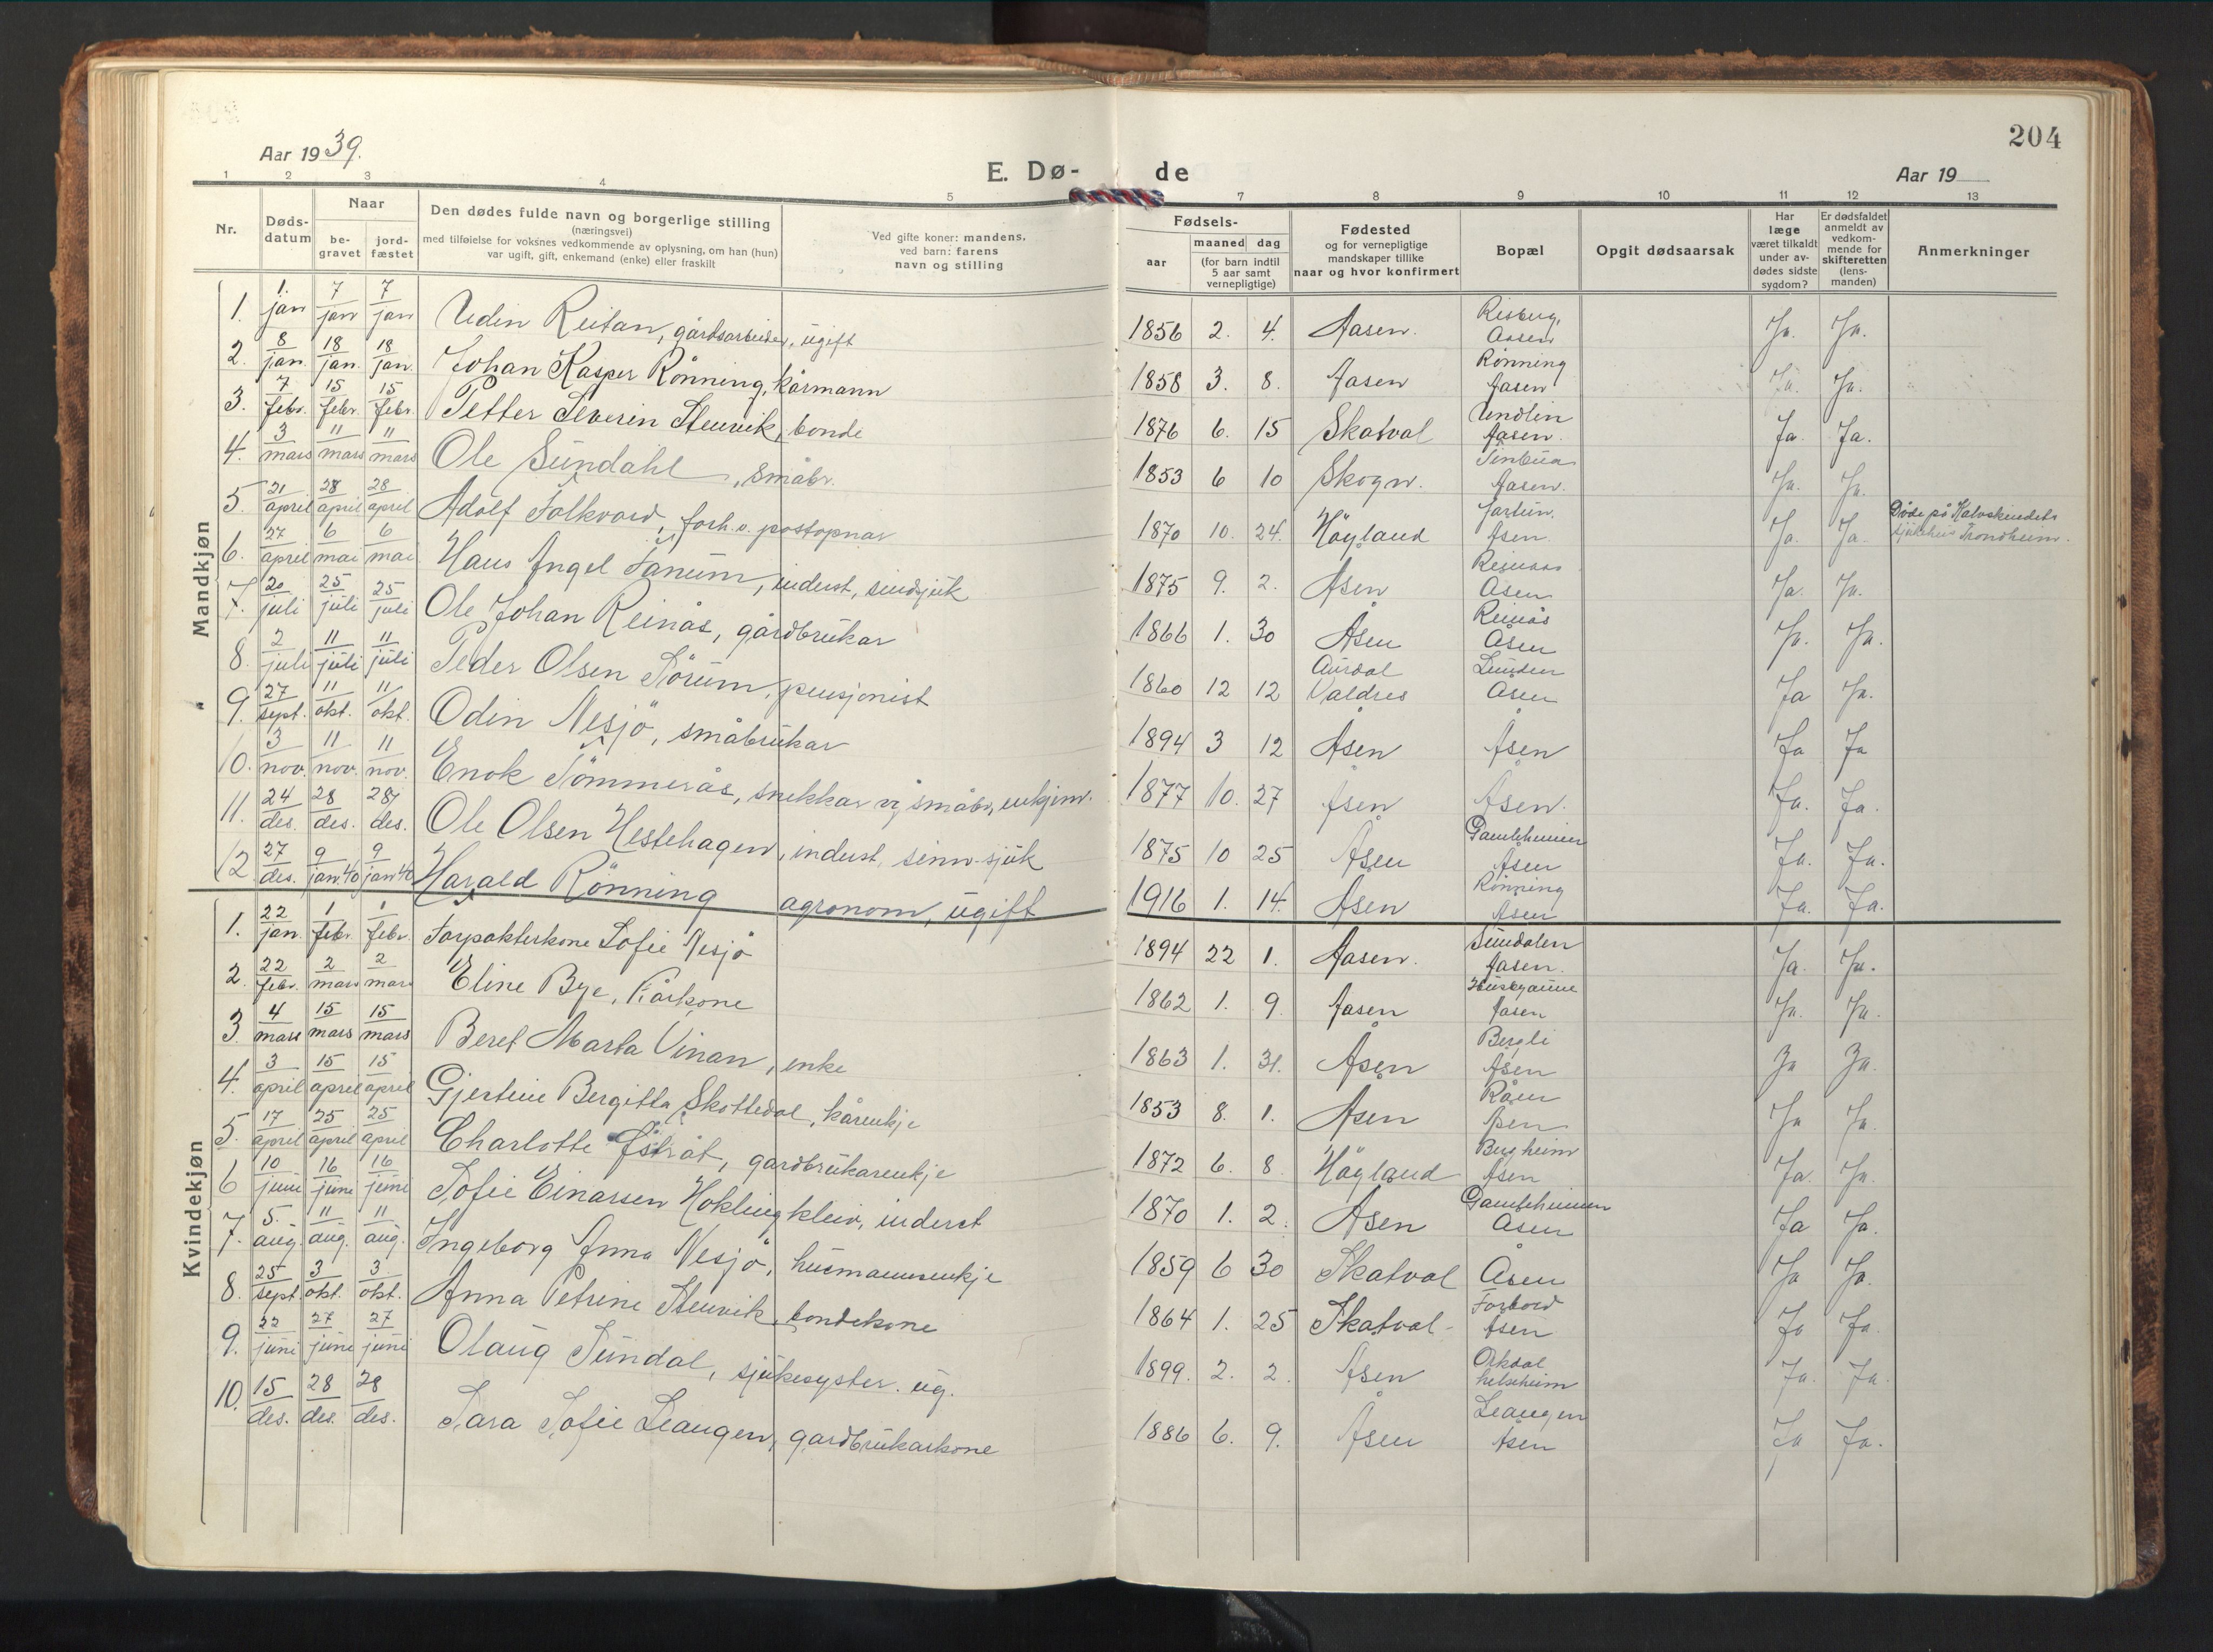 204
Aar 1939.
E. Dø-
de
Aar 19
1 2 3 4 5 7 8 9 10 11 12 13
Nr.
Døds-
datum
Naar
be-
gravet
jord-
fæstet
Den dødes fulde navn og borgerlige stilling
(næringsvei)
med tilføielse for voksnes vedkommende av oplysning, om han (hun)
var ugift, gift, enkemand (enke) eller fraskilt
Ved gifte koner: mandens,
ved barn: farens
navn og stilling
Fødsels-
aar
maaned dag
(for barn indtil
5 aar samt
vernepligtige)
Fødested
og for vernepligtige
mandskaper tillike
naar og hvor konfirmert
Bopæl
Opgit dødsaarsak
Har
læge
været tilkaldt
under av-
dødes sidste
sygdom?
Er dødsfaldet
anmeldt av
vedkom-
mende for
skifteretten
(lens-
manden)
Anmerkninger
Mandkjøn
1. 1. jan 7 jan 7 jan Udin Reitan, gårdsarbeider, ugift 1856 2. 4. Aasen. Risberg, Aasen Ja. Ja.
2. 8 jan. 18 jan. 18 jan. Johan Kasper Rönning, kårmann 1858 3. 8. Aasen Rönning Aasen Ja. Ja.
3. 7 febr. 15 febr. 15 febr. Petter Severin Stenvik, bonde 1876 6. 15 Skatval Undlin Aasen. Ja. Ja.
4. 3 mars 11 mars 11 mars Ole Sundahl, småbr. 1853 6 10 Skogn. Aasen. Ja. Ja.
5. 21 april 28 april 28 april Adolf Falkvord, forh.v. postopnar 1870 10. 24. Høyland Åsen. Ja. Ja. Døde på Kalvskindets sjukehus Trondheim.
6. 27 april 6 mai 6 mai Hans Angel Fanum, inderst, sindsjuk 1875 9. 2. Åsen Åsen Ja. Ja.
7. 20 juli 25 juli 25 juli Ole Johan Reinås, gårdbrukar 1866 1. 30 Åsen Reinås Åsen Ja. Ja.
8. 2 juli 11 juli 11 juli Peder Olsen Sörum, pensjonist 1860 12 12 Aurdal Valdres Lunden Åsen Ja Ja.
9. 27 sept. 11 okt. 11 okt. Odin Nesjö, småbrukar 1894 3 12 Åsen Åsen Ja Ja
10. 3 nov. 11 nov. 11 nov. Enok Tömmerås, snekkar og småbr, enkjem. 1877 10. 27 Åsen Åsen. Ja. Ja.
11. 24 des. 28 des. 28 des. Ole Olsen Hestehagen, inderst, sinn-sjuk 1875 10 25 Åsen Gamleheimen Åsen Ja. Ja.
12 27 des. 9 jan. 40 9 jan 40 Harald Rönning agronom, ugift 1916 1. 14. Åsen Rönning Åsen Ja. Ja.
Kvindekjøn
1. 22 jan. 1 febr. 1 febr. Forpakterkone Sofie Nesjö 1894 22 1. Aasen. Sundalen Aasen. Ja. Ja.
2. 22 febr. 2 mars 2 mars Eline Bye, Kårkone 1862 1. 9. Aasen Aasen Ja. Ja.
3. 4 mars 15 mars 15 mars Beret Marta Vinan, enke 1863 1. 31. Åsen Bergli Åsen Ja Ja.
4. 3 april 15 april 15 april Gjertine Bergitta Skottedal, kårenkje 1853 8. 1. Åsen Råen Åsen Ja Ja.
5. 17 april 25 april 25 april Charlotte Östråt, gardbrukarenkje 1872 6. 8 Høyland Bergheim Åsen Ja. Ja.
6 10 juni 16 juni 16 juni Sofie Einarsen Hoklingkleiv, inderst 1870 1. 2. Åsen Gamleheimen Åsen Ja Ja.
7. 5. aug. 11 aug. 11 aug. Ingeborg Anna Nesjö, husmannsenkje 1859 6 30 Skatval Åsen Ja Ja.
8. 25 sept. 3 okt. 3 okt. Anna Petrine Stenvik, bondekone 1864 1. 25 Skatval Forbord Åsen Ja Ja.
9. 22 juni 27 juni 27 juni Olaug Sundal, sjukesyster. ug. 1899. 2. 2. Åsen Orkdal helseheim Ja. Ja.
10. 15 des. 28 des. 28 des. Sara Sofie Leangen, gardbrukarkone 1886 6. 9. Åsen Leangen Åsen Ja Ja.